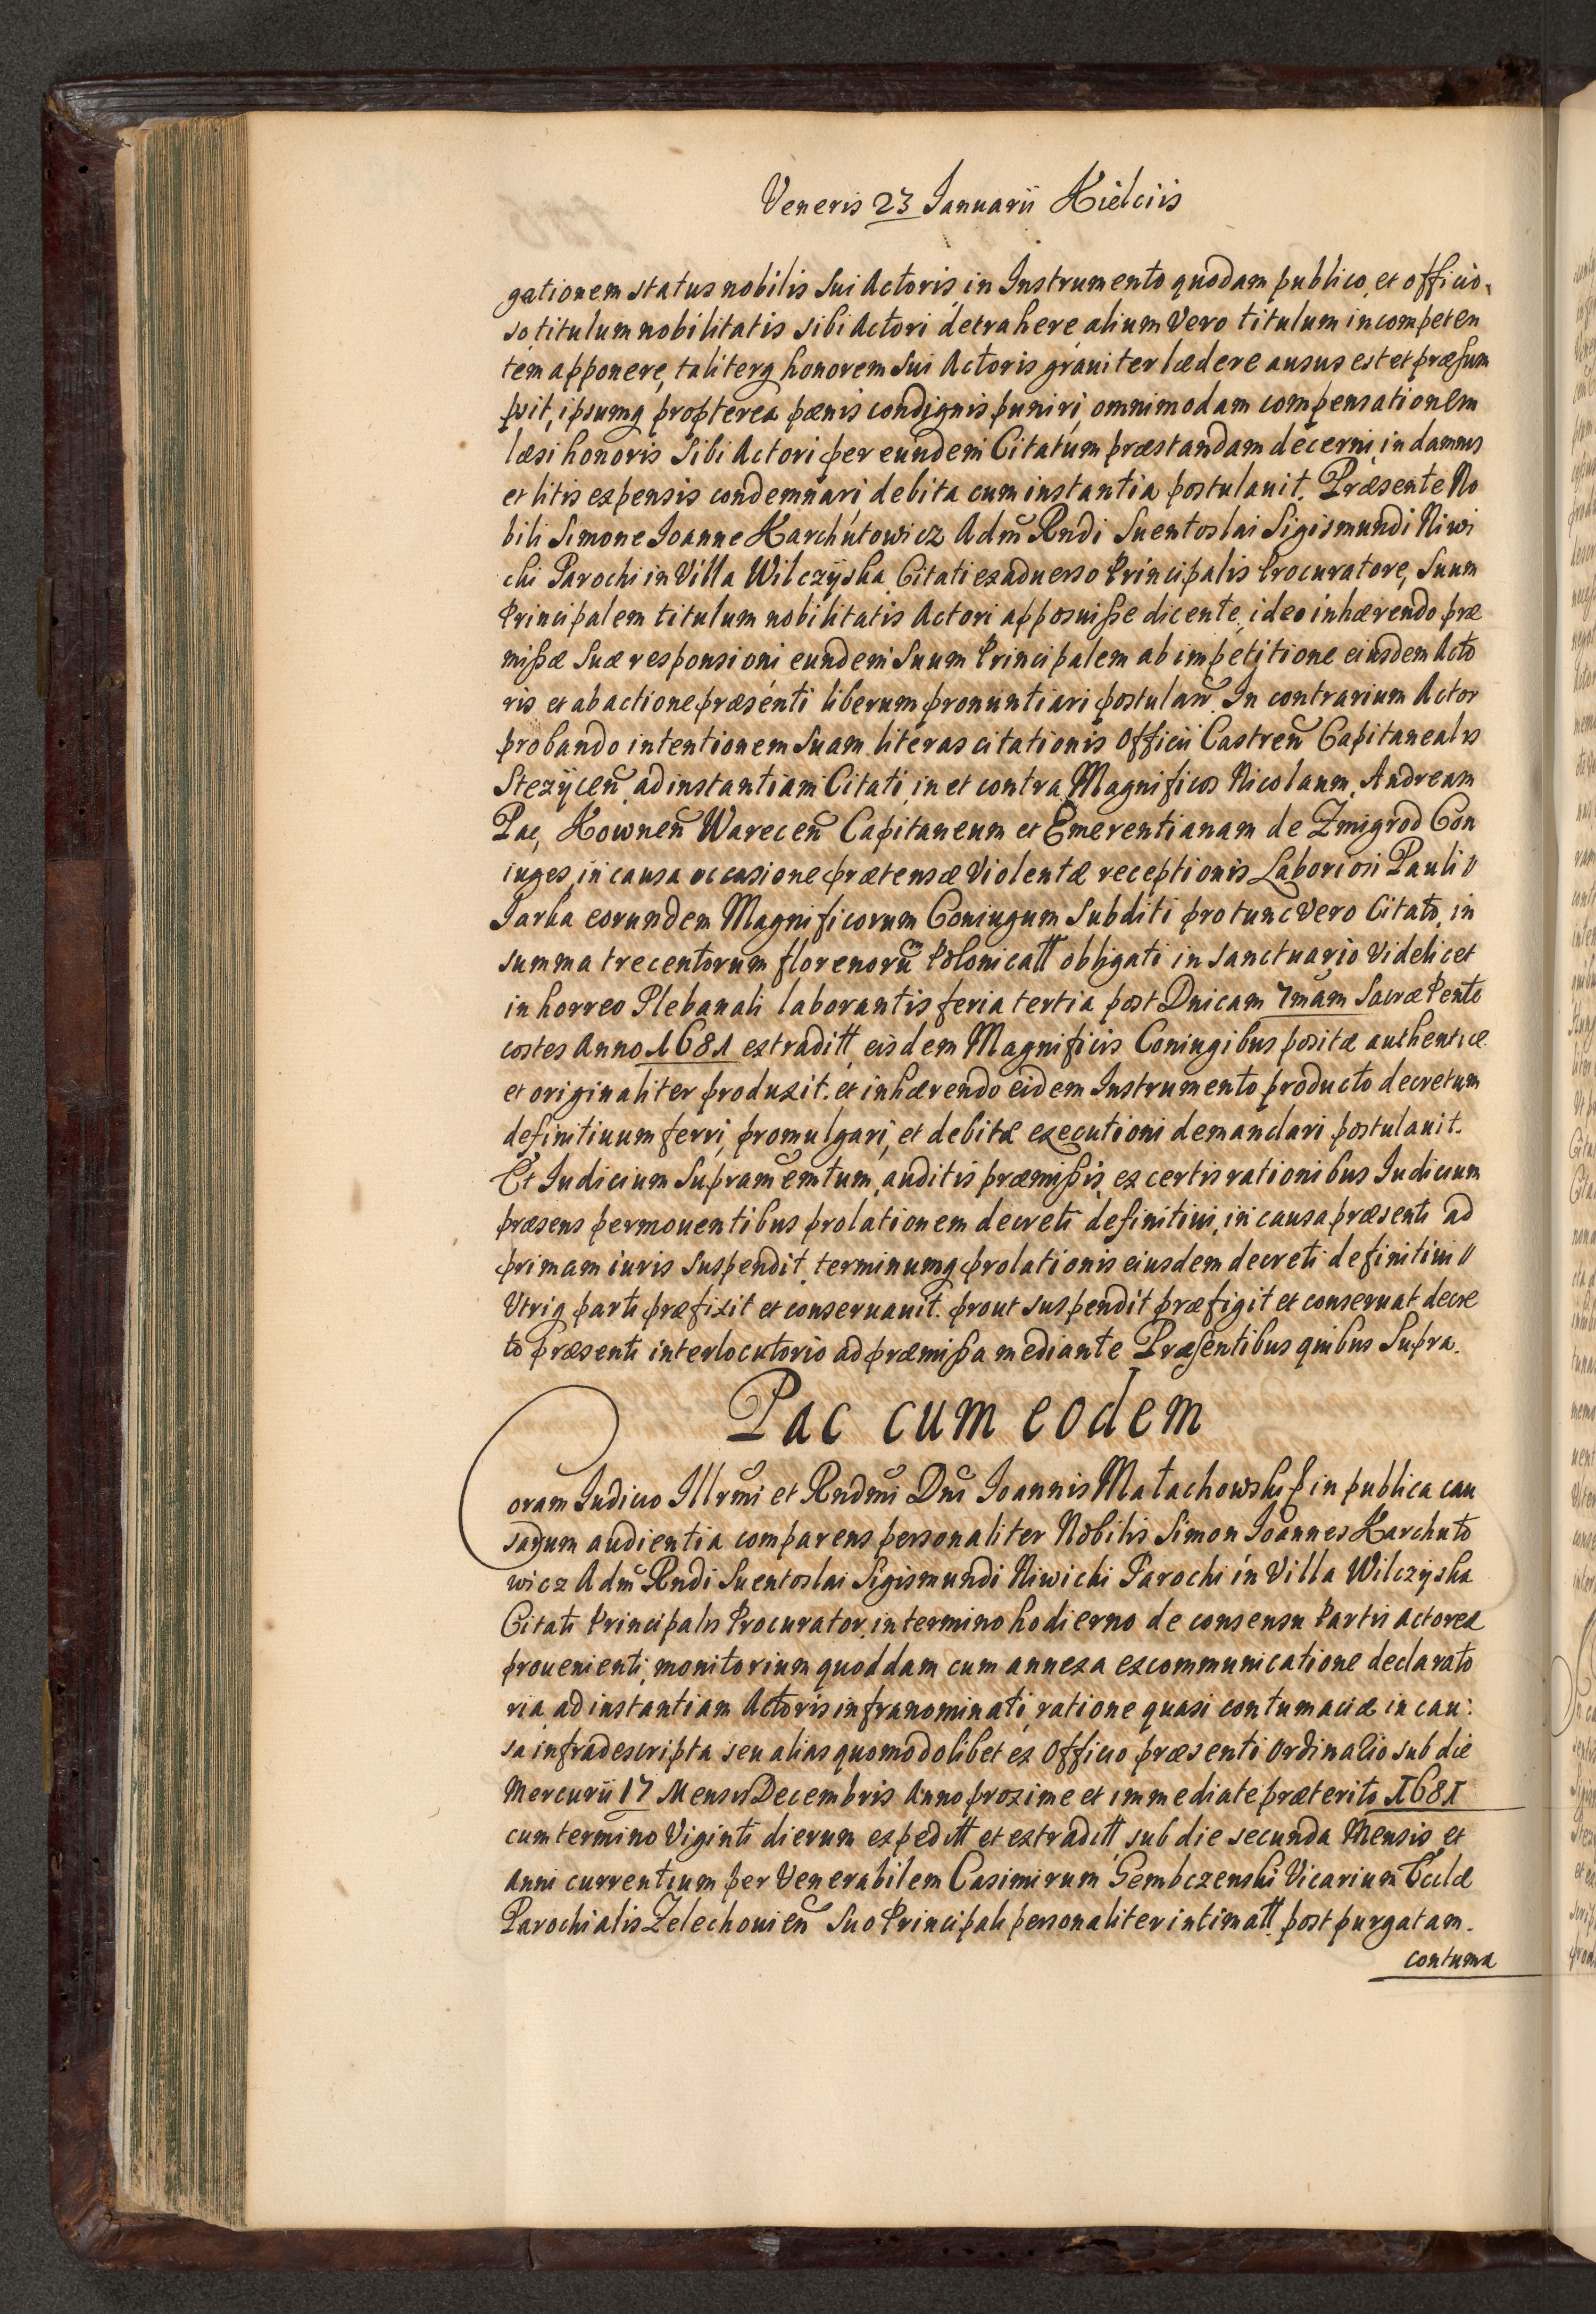 Veneris 23 Januarii Kielciis
gationem status nobilis sui Actoris in Instrumento quodam publico, et officio,
so, titulum nobilitatis sibi Actori detrahere, alium Vero titulum incompeten
tem apponere, taliterq honorem sui Actoris grauiter lædere ausus est et præsum
psit, ipsumq propterea pænis condignis puniri, omnimodam compensationem
læsi honoris sibi Actori per eundem Citatum præstandam decerni, in damnis
et litis expensis condemnari, debita cum instantia postulauit. Præsente No
bili Simone Joanne Karchutowicz Adm̃ Rndi Suentoslai Sigismundi Niwi
cki Parochi in Villa Wilczÿska Citati ex aduerso Principalis Procuratore, Suum
Principalem titulum nobilitatis Actori apposuisse dicente, ideo inhærendo præ
missæ suæ responsioni eundem Suum Principalem ab impetitione eiusdem Acto
ris et ab actione præsenti liberum pronuntiari postulañ. In contrarium Actor
probando intentionem suam literas citationis Officii Castreñ Capitanealis
Stezÿceñ ad instantiam Citati, in et contra Magnificos Nicolaum, Andream
Pac, Kowneñ Wareceñ Capitaneum et Emerentianam de Zmigrod Con
iuges, in causa occasione prætensæ Violentæ receptionis Laboriosi Pauli //
Jarka eorundem Magnificorum Coniugum Subditi pro tunc Vero Citato, in
summa trecentorum florenorũ Polonicatt obligati in sanctuario Videlicet
in horreo Plebanali laborantis feria tertia post Dnicam 7mam Sacræ Pente
costes Anno 1681 extraditt, eisdem Magnificis Coniugibus positæ authenticæ
et originaliter produxit. et inhærendo eidem Instrumento producto decretum
definitiuum ferri, promulgari, et debitæ executioni demandari postulauit.
Et Iudicium Supramemtum, auditis præmissis, ex certis rationibus Iudicium
præsens permouentibus prolationem decreti definitiui, in causa præsenti ad
primam iuris suspendit, terminumq prolationis eiusdem decreti definitiui //
Utriq parti præfixit et conseruauit. prout suspendit præfigit et conseruat decre
to præsenti interlocutorio ad præmissa mediante Præsentibus quibus Supra.
Pac cum eodem
Coram Iudicio Illrmi et Rndmi Dni Joannis Małachowski in publica cau
sarum audientia comparens personaliter Nobilis Simon Joannes Karchuto
wicz Adm̃ Rndi Suentoslai Sigismundi Niwicki Parochi in Villa Wilczyska
Citati Principalis Procurator, in termino hodierno de consensu Partis Actoreæ
prouenienti, monitorium quoddam cum annexa excommunicatione declarato
ria, ad instantiam Actoris infranominati, ratione quasi contumaciæ in cau:
sa infradescripta seu alias quomodolibet ex Officio præsenti Ordinario sub die
Mercurii 17 Mensis Decembris Anno proxime et immediate præterito 1681
cum termino Viginti dierum expeditt et extraditt, sub die secunda Mensis et
Anni currentium per Venerabilem Casimirum Gembczenski Vicarium Ecclæ
Parochialis Zelechouieñ Suo Principali personaliter intimatt. post purgatam.
contuma